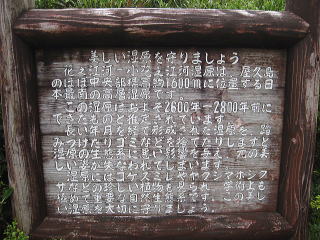 美しい湿原を守りましょう
花之江河・小花之江河湿原は、屋久島
のほぼ中央部標高約1600mに位置する日
本最南の高層湿原です。
この湿原はおよそ2600年〜2800年前に
できたものと推定されています。
長い年月を経て形成された湿原を、踏
みつけたりゴミなどを捨てたりしますと
湿原の生態系に悪い影響を与え、元の美
しい姿が失なわれてしまいます。
湿原にはコケスミレやヤクシマホシクサ
などの珍しい植物も見られ、学術上も
極めて重要な自然生態系です。この美し
い湿原を大切に守りましょう。